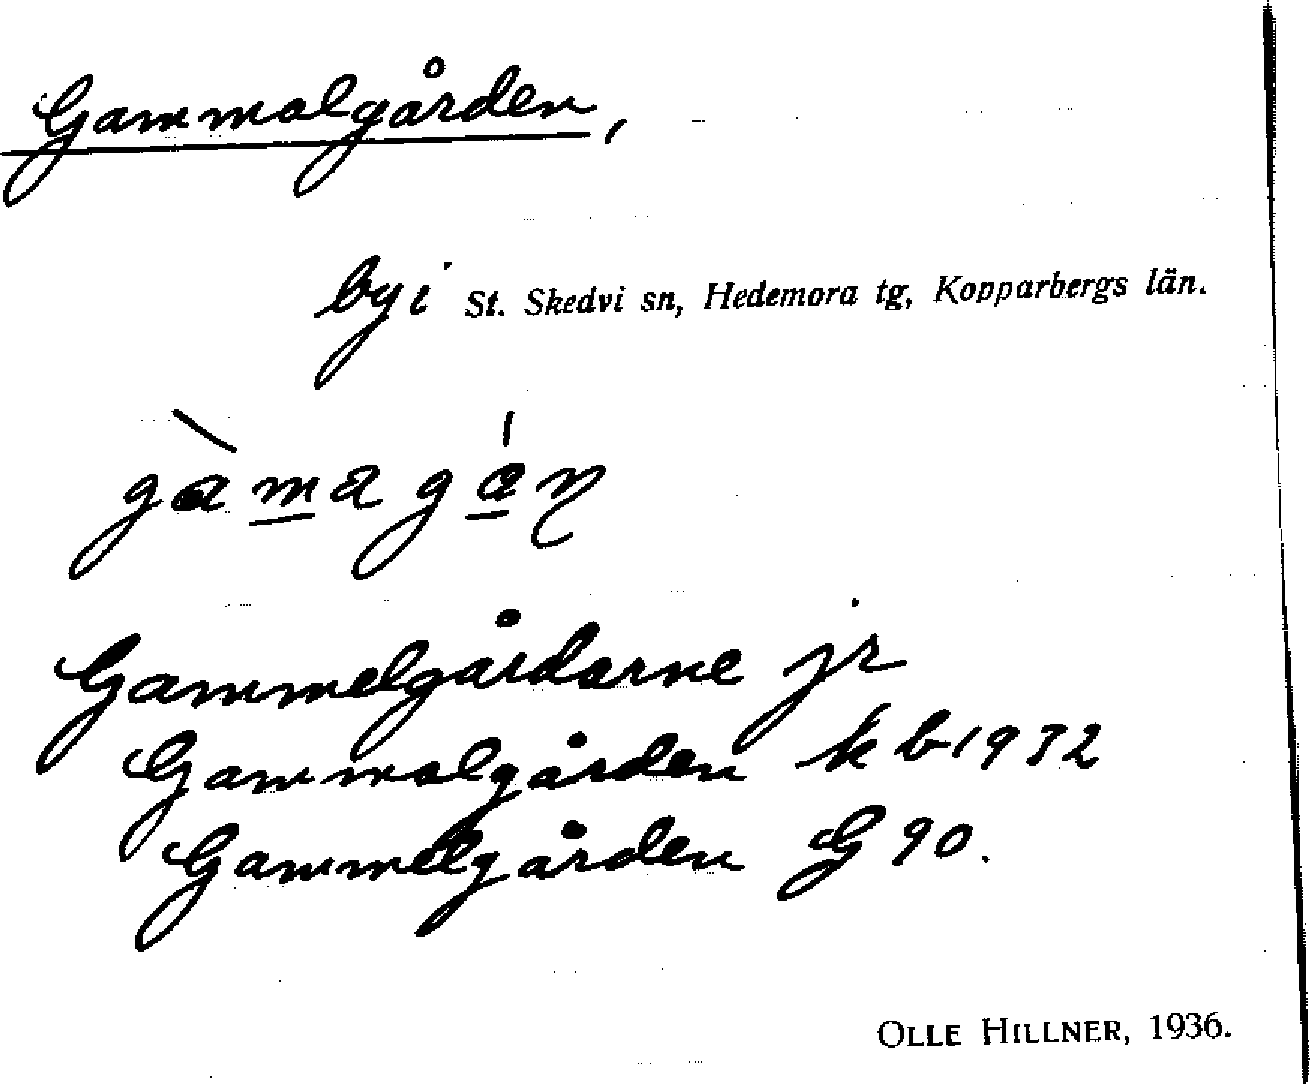 Gammalgården,
by i St. Skedvi sn, Hedemora tg, Kopparbergs län.
Gammelgårdarne jr
Gammalgården kb 1932
Gammelgården G 90.
OLLE HILLNER, 1936.